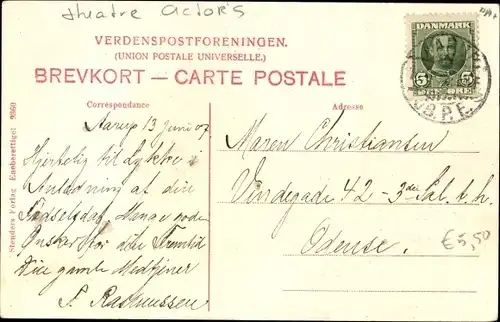 theatre actor's
VERDENSPOSTFORENINGEN.
(UNION POSTALE UNIVERSELLE.)
BREVKORT — CARTE POSTALE
DANMARK
5 5
J.B.P.E.
Correspondance
Adresse
Aarup 13 Juni 07.
Hjertelig til Lykke i
Anledning af din
Fødselsdag. Mange gode
Ønsker for din Fremtid
Din gamle Medtjener
P. Rasmussen
Maren Christiansen
Vindegade 42 - 3die Sal. t. h.
Odense.
€5,50
Stenders Forlag Eneberettiget 3960